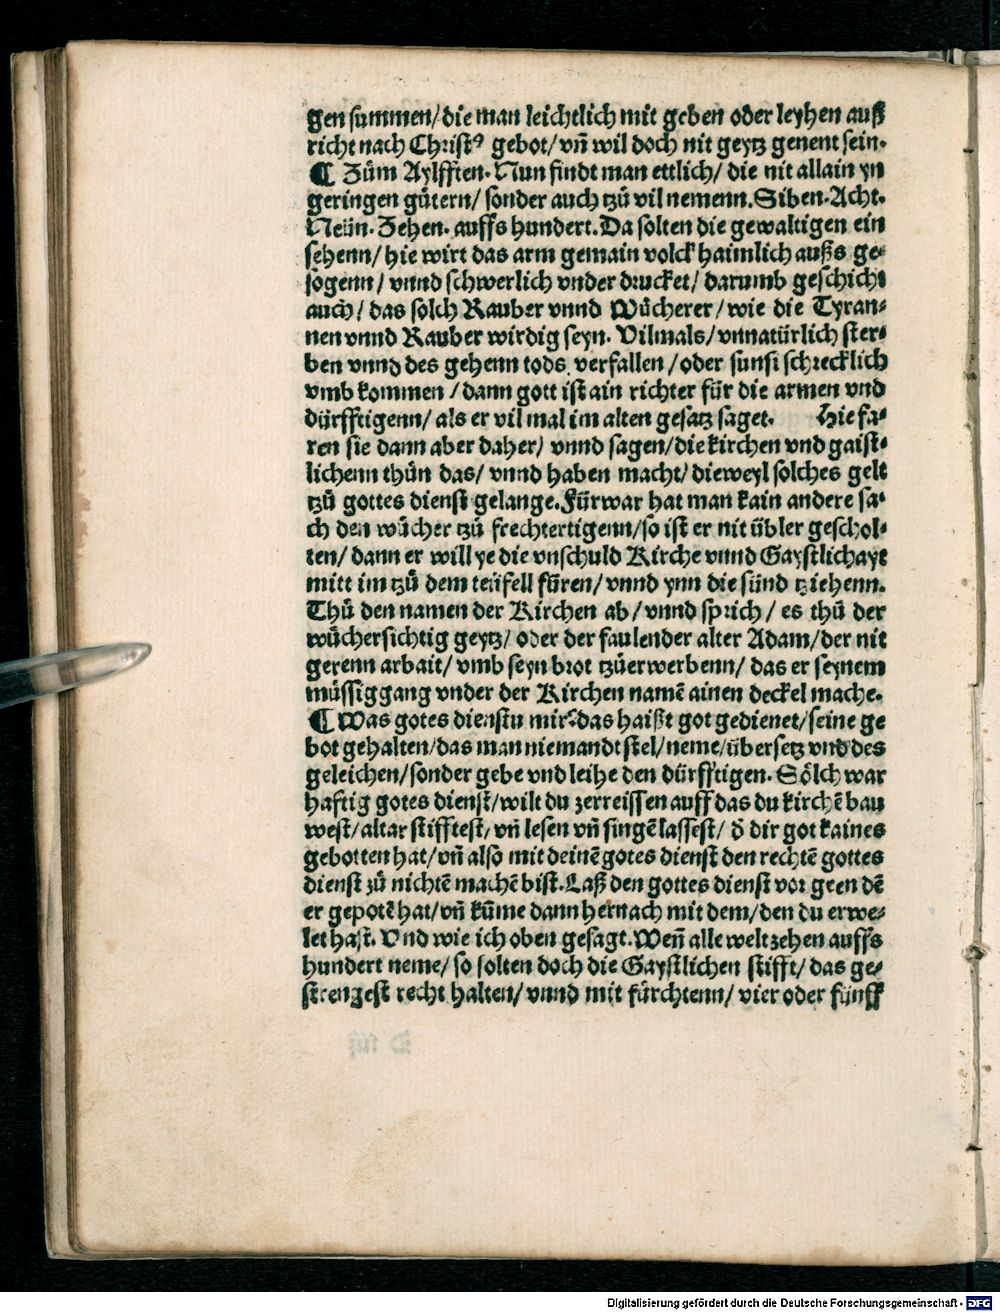 gen summen/ die man leichtlich mit geben oder leyhen auß
richt nach Christꝰ gebot/ vñ wil doch nit geytz genent sein.
¶ Zům Aylfften. Nun findt man ettlich/ die nit allain yn
geringen gůtern/ sonder auch tzů vil nemenn. Siben. Acht.
Neün. Zehen. auffs hundert. Da solten die gewaltigen ein
sehenn/ hie wirt das arm gemain volck haimlich außs ge-
sogenn/ vnnd schwerlich vnder drucket/ darumb geschicht
auch/ das solch Rauber vnnd Wůcherer/ wie die Tyran-
nen vnnd Rauber wirdig seyn. Vilmals/ vnnatürlich ster-
ben vnnd des gehenn tods verfallen/ oder sunst schrecklich
vmb kommen/ dann gott ist ain richter für die armen vnd
dürfftigenn/ als er vil mal im alten gesatz saget. Hie fa-
ren sie dann aber daher/ vnnd sagen/ die kirchen vnd gaist-
lichenn thůn das/ vnnd haben macht/ dieweyl solches gelt
tzů gottes dienst gelange. Fürwar hat man kain andere sa-
ch den wůcher tzů frechtertigenn/ so ist er nit übler geschol-
ten/ dann er will ye die vnschuld Kirche vnnd Gaystlichayt
mitt im tzů dem teüfell fůren/ vnnd ynn die sünd tziehenn.
Thů den namen der Kirchen ab/ vnnd sprich/ es thů der
wůchersichtig geytz/ oder der faulender alter Adam/ der nit
gerenn arbait/ vmb seyn brot tzůerwerbenn/ das er seynem
müssiggang vnder der Kirchen namẽ ainen deckel mache.
¶ Was gotes dienstu mir? das haißt got gedienet/ seine ge
bot gehalten/ das man niemandt stel/ neme/ übersetz vnd des
geleichen/ sonder gebe vnd leihe den dürfftigen. Sölch war
hafftig gotes dienst/ wilt du zerreissen auff das du kirchẽ bau
west/ altar stifftest/ vñ lesen vñ singẽ lassest/ ð dir got kaines
gebotten hat/ vñ also mit deinẽ gotes dienst den rechtẽ gottes
dienst zů nichtẽ machẽ bist. Laß den gottes dienst vor geen dẽ
er gepotẽ hat/ vñ kům̃e dann hernach mit dem/ den du erwe-
let hast. Vnd wie ich oben gesagt. Weñ alle welt zehen auffs
hundert neme/ so solten doch die Gaystlichen stifft/ das ge-
strengest recht halten/ vnnd mit fürchtenn/ vier oder fünff
Digitalisierung gefördert durch die Deutsche Forschungsgemeinschaft - DFG